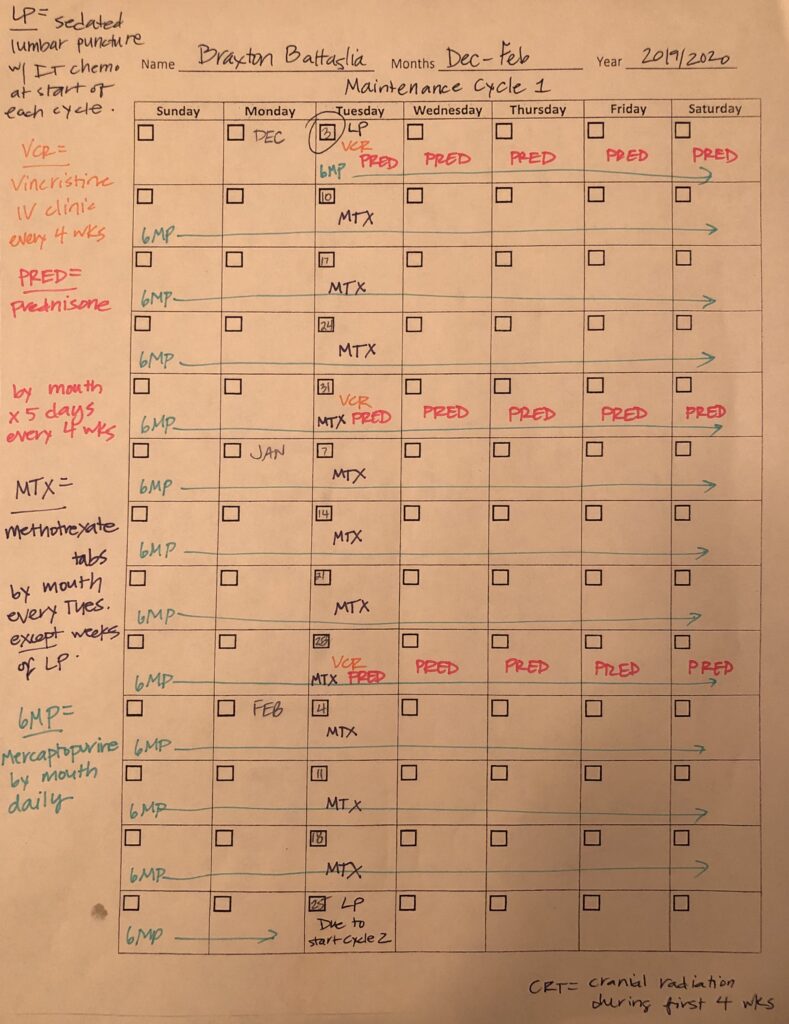 LP = sedated
lumbar puncture
w/ IT chemo
at start of
each cycle.
Name Braxton Battaglia Months Dec-Feb Year 2019/2020
Maintenance Cycle 1
Sunday Monday Tuesday Wednesday Thursday Friday Saturday
DEC 3 LP
VCR
6MP PRED PRED PRED PRED PRED
10
MTX
6MP
17
MTX
6MP
24
MTX
6MP
31
VCR
6MP MTX PRED PRED PRED PRED PRED
JAN 7
MTX
6MP
14
MTX
6MP
21
MTX
6MP
28
VCR
6MP MTX PRED PRED PRED PRED PRED
FEB 4
MTX
6MP
11
MTX
6MP
18
MTX
6MP
25 LP
Due to
6MP start cycle 2
VCR =
Vincristine
IV clinic
every 4 wks
PRED =
prednisone
by mouth
x 5 days
every 4 wks
MTX =
methotrexate
tabs
by mouth
every Tues.
except weeks
of LP.
6MP =
Mercaptopurine
by mouth
daily
CRT = cranial radiation
during first 4 wks